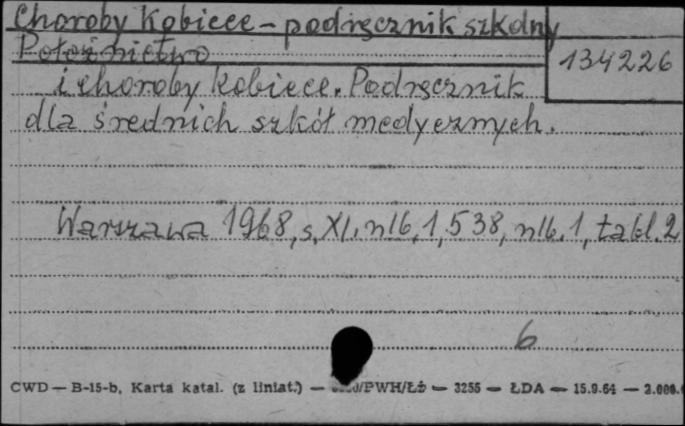 Choroby kobiece – podręcznik szkolny
Położnictwo
134226
i choroby kobiece. Podręcznik
dla średnich szkół medycznych.
Warszawa 1968, s. XI. nlb, 1, 538, nlb. 1, tabl. 2
6
CWD — B-15-b, Karta katal. (z liniat.) — /PWH/Łż — 3255 — ŁDA — 15.9.64 — 2.000.